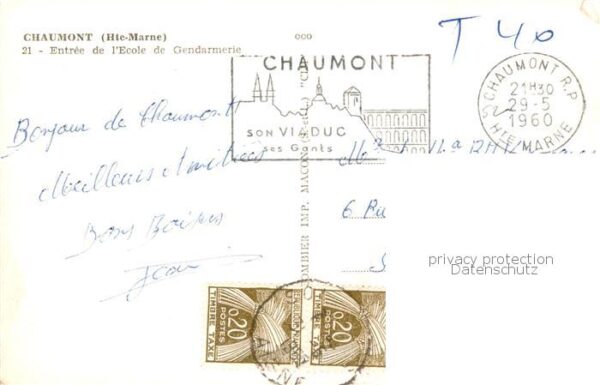 CHAUMONT (Hte-Marne)
21 - Entrée de l'Ecole de Gendarmerie
T 40
CHAUMONT
SON VIADUC
ses Gants
CHAUMONT R.P
21H30
29-5
1960
HTE MARNE
Bonjour de Chaumont
Meilleures Amitiés
Bons Baisers
Jean
6 Rue
COMBIER IMP. MACON
privacy protection
Datenschutz
0,20
POSTES
TIMBRE TAXE
0,20
POSTES
TIMBRE TAXE